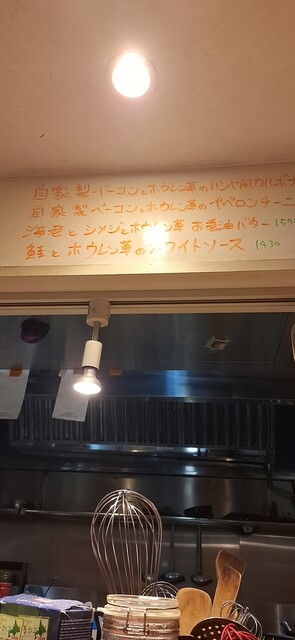 自家製ベーコンとホウレン草のハシヤ風カルボナ
自家製ベーコンとホウレン草のペペロンチーニ
海老とシメジとホウレン草 お醤油バター 159
鮭とホウレン草のホワイトソース 1430